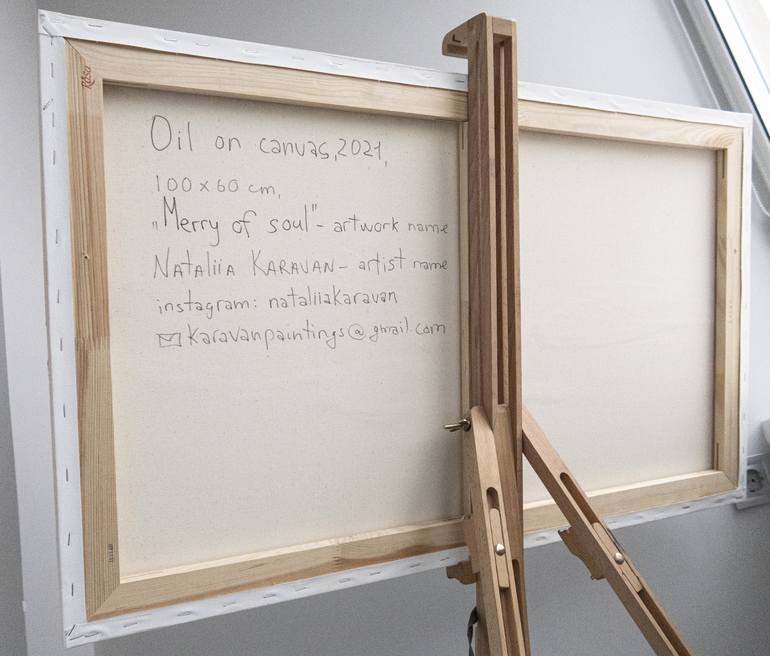 Rosa
Oil on canvas, 2021,
100 x 60 cm,
„Merry of soul" - artwork name
NATALIIA KARAVAN - artist name
instagram: nataliiakaravan
karavanpaintings@gmail.com